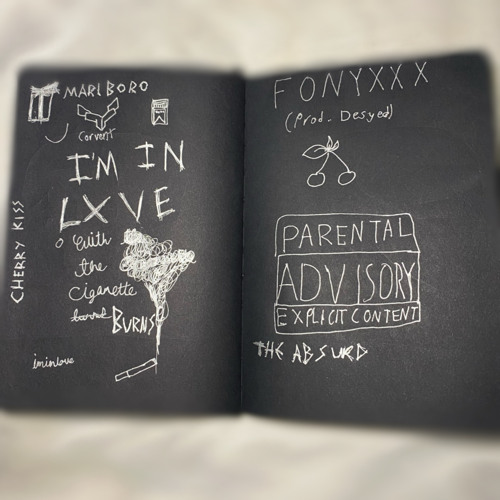 MARLBORO
Corvent
I'M IN
LXVE
With
the
Cigarette
BURNS
CHERRY KISS
iminlove
FONYXXX
(Prod. Desyed)
PARENTAL
ADVISORY
EXPLICIT CONTENT
THE ABSURD